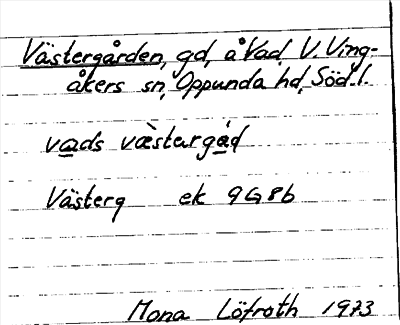 Västergården, gd, å Vad V. Ving-
åkers sn, Oppunda hd, Söd. l.
vads væ̀stərgɑ́d
Västerg ek 9G8b
Mona Löfroth 1973